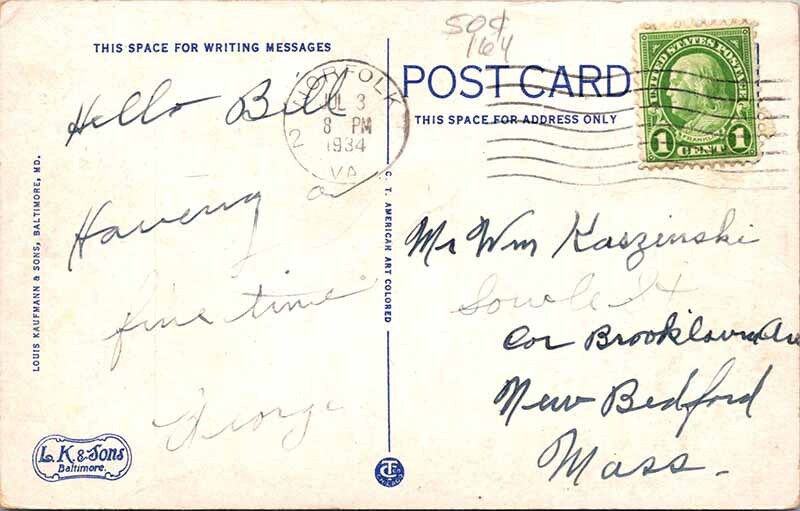 50¢
164
THIS SPACE FOR WRITING MESSAGES
NORFOLK
JUL 3
8 PM
1934
VA
2
POST CARD
THIS SPACE FOR ADDRESS ONLY
UNITED STATES POSTAGE
FRANKLIN
1 CENT 1
Hello Bill
Haveing a
fine time
George
Mr Wm Kaszenski
Sowle St
Cor Brooklawn Ave
New Bedford
Mass.
LOUIS KAUFMANN & SONS, BALTIMORE, MD.
C. T. AMERICAN ART COLORED
L. K. & Sons
Baltimore.
CHICAGO